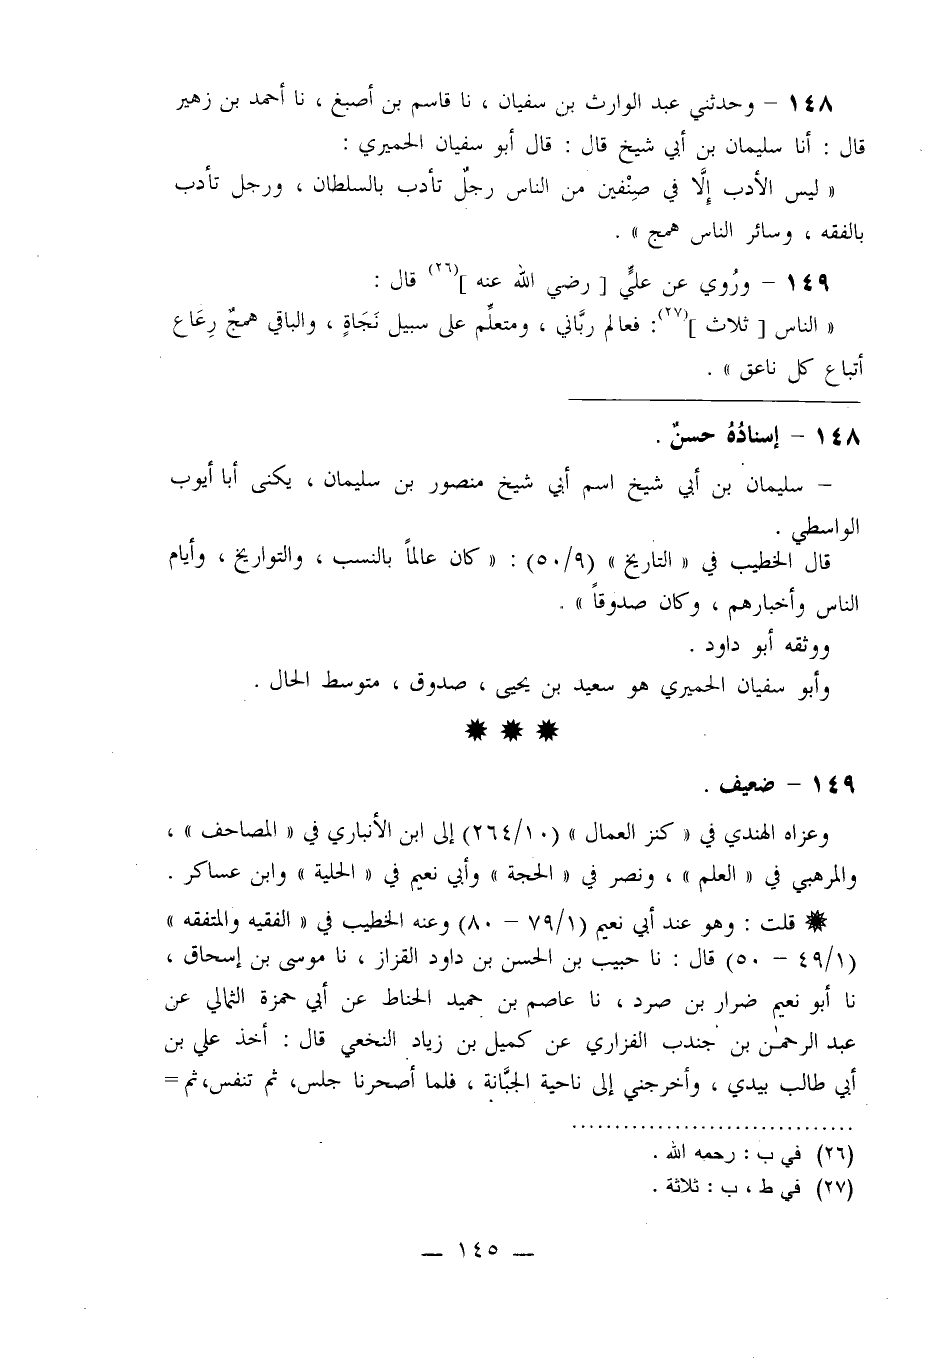 ١٤٨ – وحدثني عبد الوارث بن سفيان ، نا قاسم بن أصبغ ، نا أحمد بن زهير
قال : أنا سليمان بن أبي شيخ قال : قال أبو سفيان الحميري :
« ليس الأدب إِلَّا في صِنْفين من الناس رجلٌ تأدب بالسلطان ، ورجل تأدب
بالفقه ، وسائر الناس همج » .
١٤٩ – ورُوي عن عليٍّ [ رضي الله عنه ](٢٦) قال :
« الناس [ ثلاث ](٢٧): فعالم ربَّاني ، ومتعلِّم على سبيل نَجَاةٍ ، والباقي همجٌ رِعَاع
أتباع كل ناعق » .
١٤٨ – إسنادُهُ حسنٌ .
– سليمان بن أبي شيخ اسم أبي شيخ منصور بن سليمان ، يكنى أبا أيوب
الواسطي .
قال الخطيب في « التاريخ » (٥٠/٩) : « كان عالماً بالنسب ، والتواريخ ، وأيام
الناس وأخبارهم ، وكان صدوقاً » .
ووثقه أبو داود .
وأبو سفيان الحميري هو سعيد بن يحيى ، صدوق ، متوسط الحال .
✸ ✸ ✸
١٤٩ – ضعيف .
وعزاه الهندي في « كنز العمال » (٢٦٤/١٠) إلى ابن الأنباري في « المصاحف » ،
والمرهبي في « العلم » ، ونصر في « الحجة » وأبي نعيم في « الحلية » وابن عساكر .
✸ قلت : وهو عند أبي نعيم (٧٩/١ – ٨٠) وعنه الخطيب في « الفقيه والمتفقه »
(٤٩/١ – ٥٠) قال : نا حبيب بن الحسن بن داود القزاز ، نا موسى بن إسحاق ،
نا أبو نعيم ضرار بن صرد ، نا عاصم بن حميد الحناط عن أبي حمزة الثمالي عن
عبد الرحمٰن بن جندب الفزاري عن كميل بن زياد النخعي قال : أخذ علي بن
أبي طالب بيدي ، وأخرجني إلى ناحية الجبَّانة ، فلما أصحرنا جلس، ثم تنفس، ثم =
(٢٦) في ب : رحمه الله .
(٢٧) في ط ، ب : ثلاثة .
— ١٤٥ —